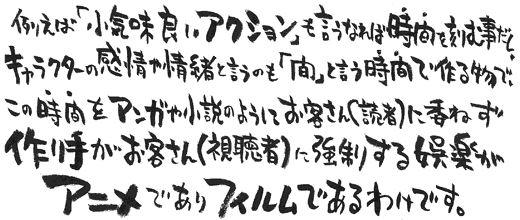 例えば「小気味良いアクション」も言うなれば時間を刻む事だし
キャラクターの感情や情緒と言うのも「間」と言う時間で作る物で、
この時間をマンガや小説のようにお客さん(読者)に委ねず
作り手がお客さん(視聴者)に強制する娯楽が
アニメでありフィルムであるわけです。